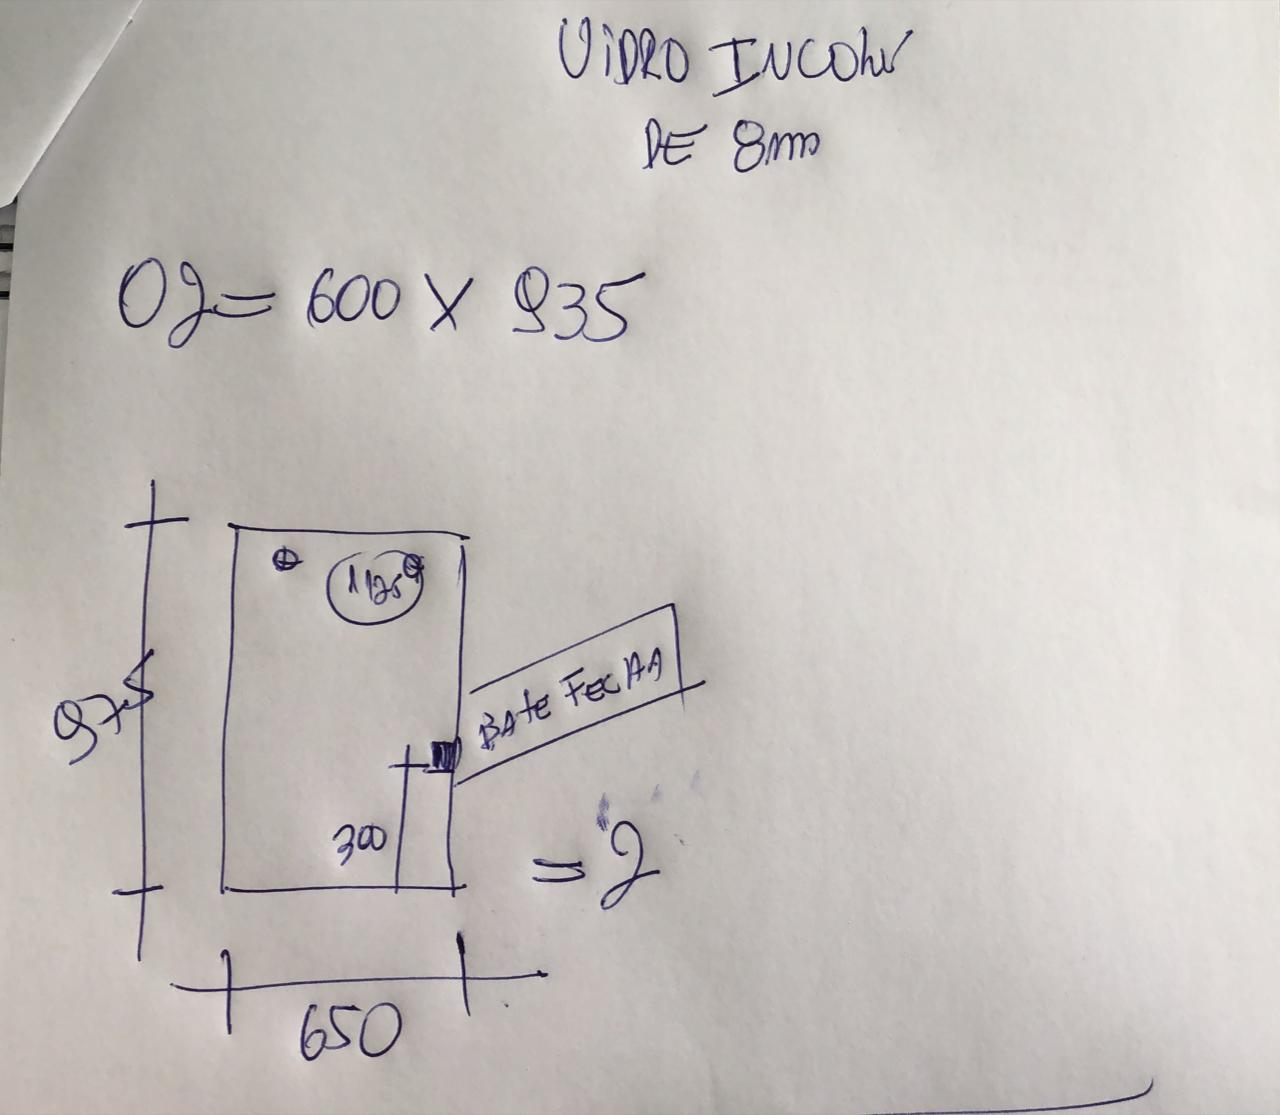 VIDRO INCOLOR
DE 8mm
02= 600 X 935
1125
975
BATE FECHA
300
= 2
650